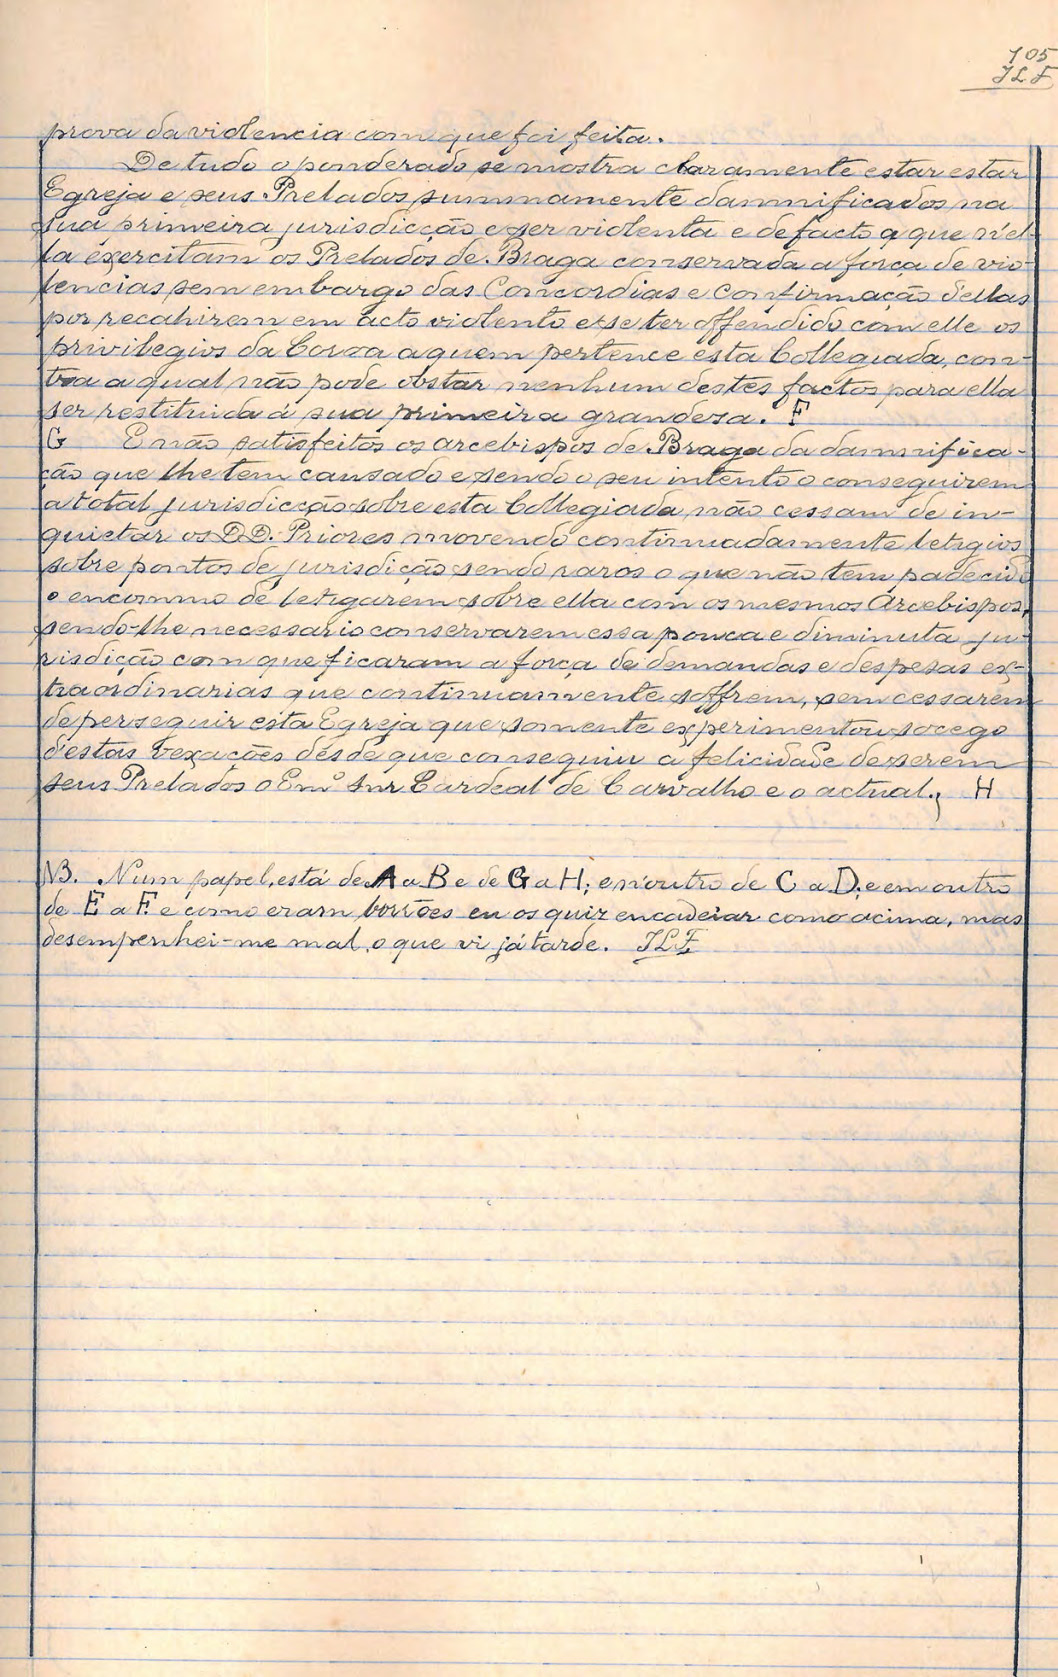 105
JLF
prova da violencia com que foi feita.
De tudo o ponderado se mostra claramente estar estar
Egreja e seus Prelados summamente damnificados na
sua primeira jurisdicção e ser violenta e de facto a que n'el-
la exercitam os Prelados de Braga conservada a força de vio-
lencias sem embargo das Concordias e confirmação dellas
por recahirem em acto violento e se ter offendido com elle os
privilegios da Coroa a quem pertence esta Collegiada, con-
tra a qual não pode obstar nenhum destes factos para ella
ser restituida á sua primeira grandesa. F
G E não satisfeitos os arcebispos de Braga da damnifica-
ção que lhe tem causado e sendo o seu intento o conseguirem
a total jurisdicção sobre esta Collegiada não cessam de in-
quietar os DD. Priores movendo continuadamente letigios
sobre pontos de jurisdição sendo raros o que não tem padecido
o encommo de letigarem sobre ella com os mesmos Arcebispos,
sendo-lhe necessario conservarem essa pouca e diminuta ju-
risdição com que ficaram a força de demandas e despesas ex-
traordinarias que continuamente soffrem, sem cessarem
de perseguir esta Egreja que somente experimentou socego
d'estas vexações désde que conseguiu a felicidade de serem
seus Prelados o Emº Snr Cardeal de Carvalho e o actual., H
NB. Num papel está de A a B e de G a H; e n'outro de C a D; e em outro
de E a F. e como eram borrões eu os quiz encadeiar como acima, mas
desempenhei-me mal, o que vi já tarde. JLF